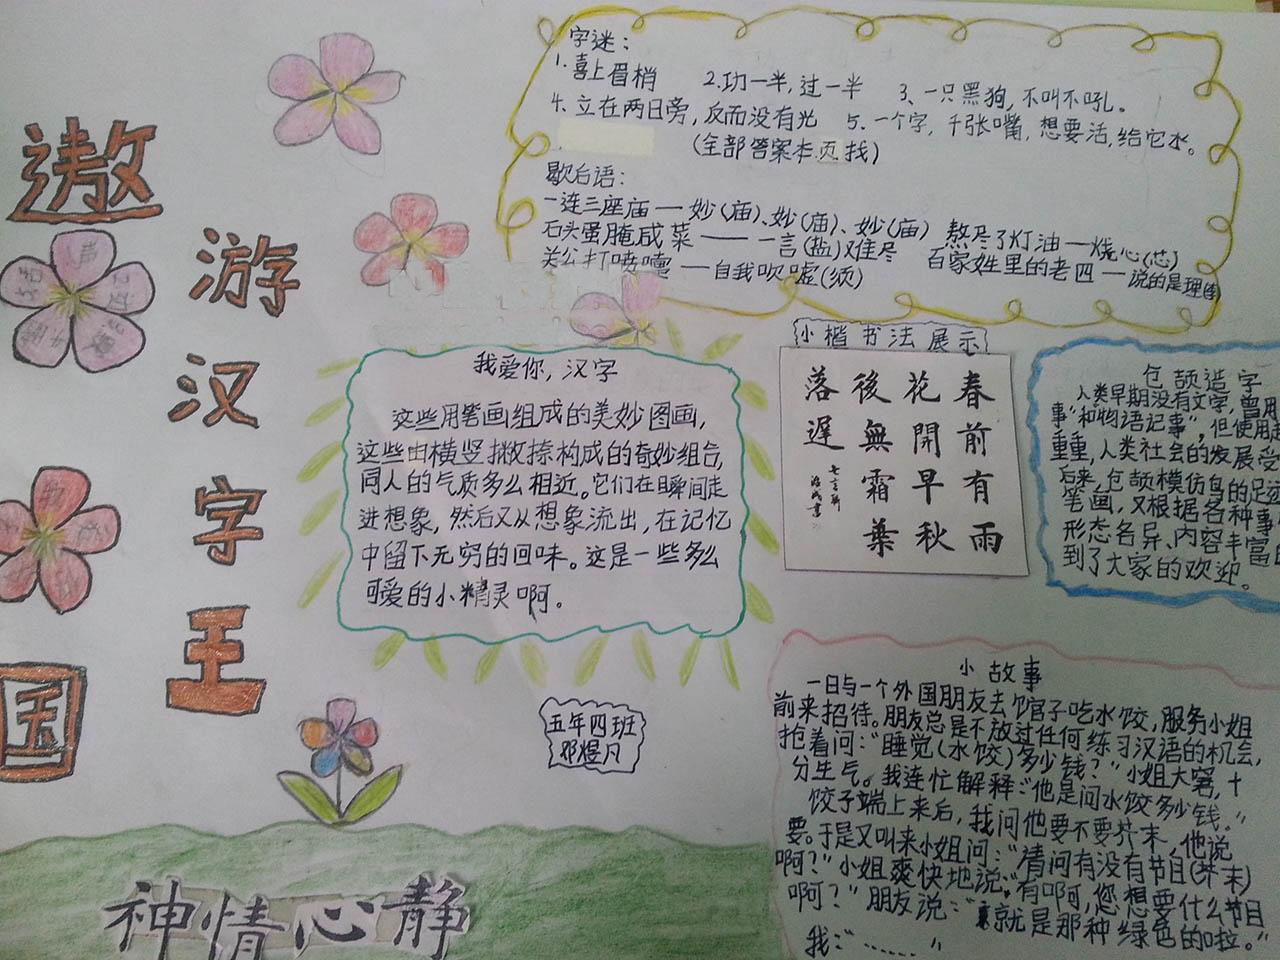 遨
游
汉
字
王
国
字迷：
1.喜上眉梢 2.功一半,过一半 3、一只黑狗,不叫不吼。
4.立在两日旁,反而没有光 5.一个字,千张嘴,想要活,给它水。
(全部答案本页找)
歇后语：
一连三座庙——妙(庙)、妙(庙)、妙(庙) 熬尽了灯油—烧心(芯)
石头蛋腌咸菜——一言(盐)难尽 百家姓里的老四—说的是理
关公打喷嚏—自我吹嘘(须)
我爱你,汉字
这些用笔画组成的美妙图画,
这些由横竖撇捺构成的奇妙组合,
同人的气质多么相近。它们在瞬间走
进想象,然后又从想象流出,在记忆
中留下无穷的回味。这是一些多么
可爱的小精灵啊。
小楷书法展示
春前有雨
花開早秋
後無霜葉
落遲
七言聯
五年四班
邓煜凡
包颉造字
人类早期没有文字,曾用
事"和物语记事",但使用起
重重,人类社会的发展受
后来,包颉模仿鸟的足迹
笔画,又根据各种事
形态各异、内容丰富的
到了大家的欢迎。
小故事
一日与一个外国朋友去饺官子吃水饺,服务小姐
前来招待。朋友总是不放过任何练习汉语的机会,
抢着问:"睡觉(水饺)多少钱?"小姐大窘,十
分生气。我连忙解释:"他是问水饺多少钱。"
饺子端上来后,我问他要不要芥末,他说
要。于是又叫来小姐问:"请问有没有节目(芥末)
啊?"小姐爽快地说:"有啊,您想要什么节目
啊?"朋友说:"就是那种绿色的啦。"
我:"……"
神情心静